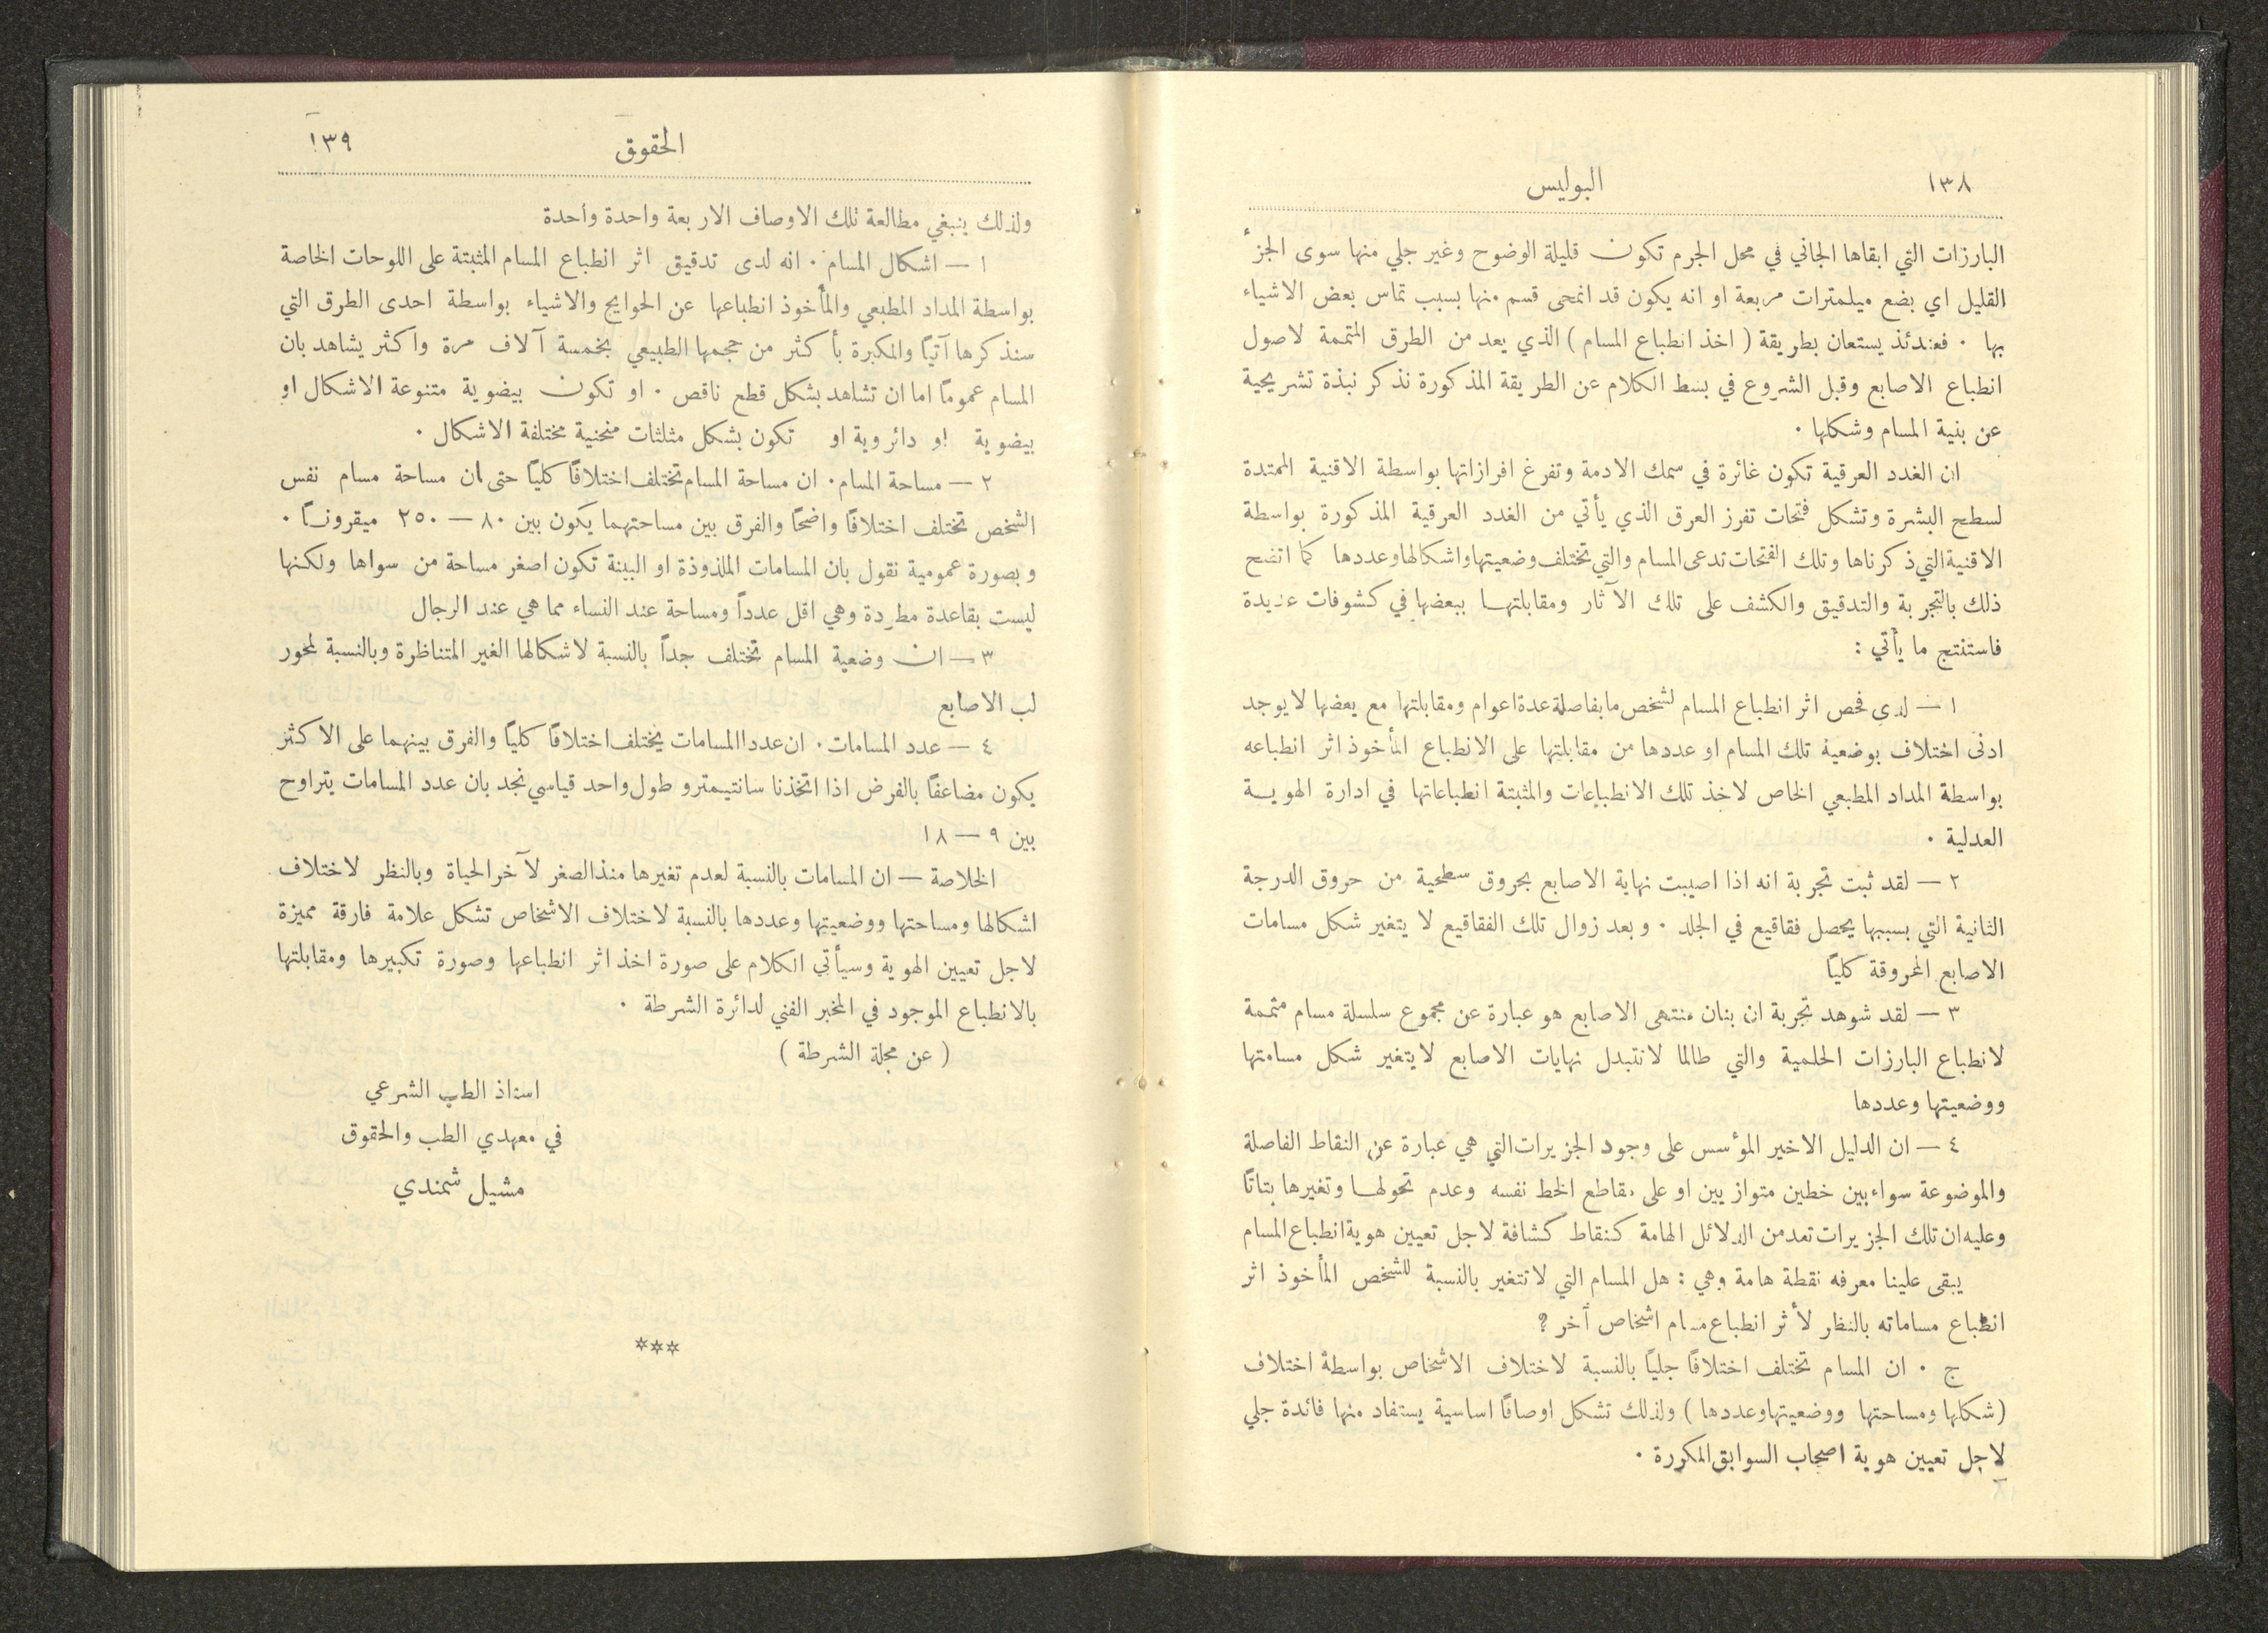 ١٣٨
البوليس
البارزات التي ابقاها الجاني في محل الجرم تكون قليلة الوضوح وغير جلي منها سوى الجزء
القليل اي بضع ميلمترات مربعة او انه يكون قد انمحى قسم منها بسبب تماس بعض الاشياء
بها . فعندئذ يستعان بطريقة ( اخذ انطباع المسام ) الذي يعد من الطرق المتممة لاصول
انطباع الاصابع وقبل الشروع في بسط الكلام عن الطريقة المذكورة نذكر نبذة تشريحية
عن بنية المسام وشكلها .
ان الغدد العرقية تكون غائرة في سمك الادمة وتفرغ افرازاتها بواسطة الاقنية الممتدة
لسطح البشرة وتشكل فتحات تفرز العرق الذي يأتي من الغدد العرقية المذكورة بواسطة
الاقنية التي ذكرناها وتلك الفتحات تدعى المسام والتي تختلف وضعيتها واشكالها وعددها كما اتضح
ذلك بالتجربة والتدقيق والكشف على تلك الآثار ومقابلتها ببعضها في كشوفات عديدة
فاستنتج ما يأتي :
١ — لدى فحص اثر انطباع المسام لشخص ما بفاصلة عدة اعوام ومقابلتها مع يعضها لا يوجد
ادنى اختلاف بوضعية تلك المسام او عددها من مقابلتها على الانطباع المأخوذ اثر انطباعه
بواسطة المداد المطبعي الخاص لاخذ تلك الانطباعات والمثبتة انطباعاتها في ادارة الهوية
العدلية .
٢ — لقد ثبت تجربة انه اذا اصيبت نهاية الاصابع بحروق سطحية من حروق الدرجة
الثانية التي بسببها يحصل فقاقيع في الجلد . وبعد زوال تلك الفقاقيع لا يتغير شكل مسامات
الاصابع المحروقة كلياً
٣ — لقد شوهد تجربة ان بنان منتهى الاصابع هو عبارة عن مجموع سلسلة مسام متممة
لانطباع البارزات الحلمية والتي طالما لاتتبدل نهايات الاصابع لايتغير شكل مسامتها
ووضعيتها وعددها
٤ — ان الدليل الاخير المؤسس على وجود الجزيرات التي هي عبارة عن النقاط الفاصلة
والموضوعة سواء بين خطين متوازيين او على مقاطع الخط نفسه وعدم تحولها وتغيرها بتاتاً
وعليه ان تلك الجزيرات تعد من الدلائل الهامة كنقاط كشافة لاجل تعيين هوية انطباع المسام
يبقى علينا معرفه نقطة هامة وهي : هل المسام التي لا تتغير بالنسبة للشخص المأخوذ اثر
انطباع مساماته بالنظر لأثر انطباع مسام اشخاص آخر ؟
ج . ان المسام تختلف اختلافاً جلياً بالنسبة لاختلاف الاشخاص بواسطة اختلاف
(شكلها ومساحتها ووضعيتها وعددها ) ولذلك تشكل اوصافاً اساسية يستفاد منها فائدة جلي
لاجل تعيين هوية اصحاب السوابق المكررة .
الحقوق
١٣٩
ولذلك ينبغي مطالعة تلك الاوصاف الاربعة واحدة واحدة
١ — اشكال المسام . انه لدى تدقيق اثر انطباع المسام المثبتة على اللوحات الخاصة
بواسطة المداد المطبعي والمأخوذ انطباعها عن الحوايج والاشياء بواسطة احدى الطرق التي
سنذكرها آتياً والمكبرة بأكثر من حجمها الطبيعي بخمسة آلاف مرة واكثر يشاهد بان
المسام عموماً اما ان تشاهد بشكل قطع ناقص . او تكون بيضوية متنوعة الاشكال او
بيضوية او دائروية او تكون بشكل مثلثات منحنية مختلفة الاشكال .
٢ — مساحة المسام . ان مساحة المسام تختلف اختلافاً كلياً حتى ان مساحة مسام نفس
الشخص تختلف اختلافاً واضحاً والفرق بين مساحتهما يكون بين ٨٠ — ٢٥٠ ميقروناً .
وبصورة عمومية نقول بان المسامات الملذوذة او البينة تكون اصغر مساحة من سواها ولكنها
ليست بقاعدة مطردة وهي اقل عدداً ومساحة عند النساء مما هي عند الرجال
٣ — ان وضعية المسام تختلف جداً بالنسبة لاشكالها الغير المتناظرة وبالنسبة لمحور
لب الاصابع
٤ — عدد المسامات . ان عدد االمسامات يختلف اختلافاً كلياً والفرق بينهما على الاكثر
يكون مضاعفاً بالفرض اذا اتخذنا سانتيمترو طول واحد قياسي نجد بان عدد المسامات يتراوح
بين ٩ — ١٨
الخلاصة — ان المسامات بالنسبة لعدم تغيرها منذ الصغر لآخر الحياة وبالنظر لاختلاف
اشكالها ومساحتها ووضعيتها وعددها بالنسبة لاختلاف الاشخاص تشكل علامة فارقة مميزة
لاجل تعيين الهوية وسيأتي الكلام على صورة اخذ اثر انطباعها وصورة تكبيرها ومقابلتها
بالانطباع الموجود في المخبر الفني لدائرة الشرطة .
( عن مجلة الشرطة )
استاذ الطب الشرعي
في معهدي الطب والحقوق
مشيل شمندي
***